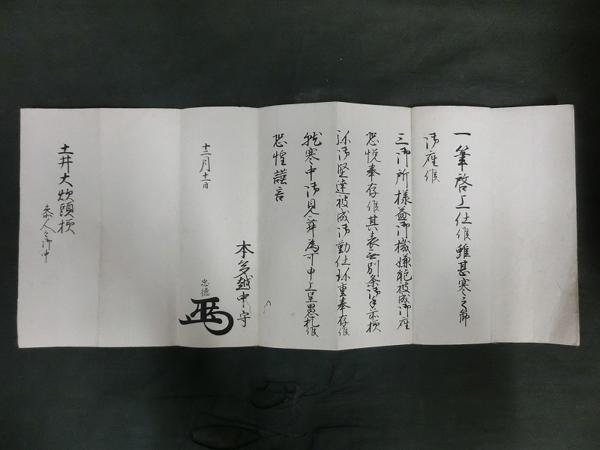 一筆啓上仕候雖甚寒之節
御座候
三御所様益御機嫌能被成御座
恐悦奉存候其表無別条御手前様
弥御堅達被成御勤仕珍重奉存候
就寒中御見舞為可申上呈愚札候
恐惶謹言
十二月十一日
本多越中守
忠徳
土井大炊頭様
参人々御中